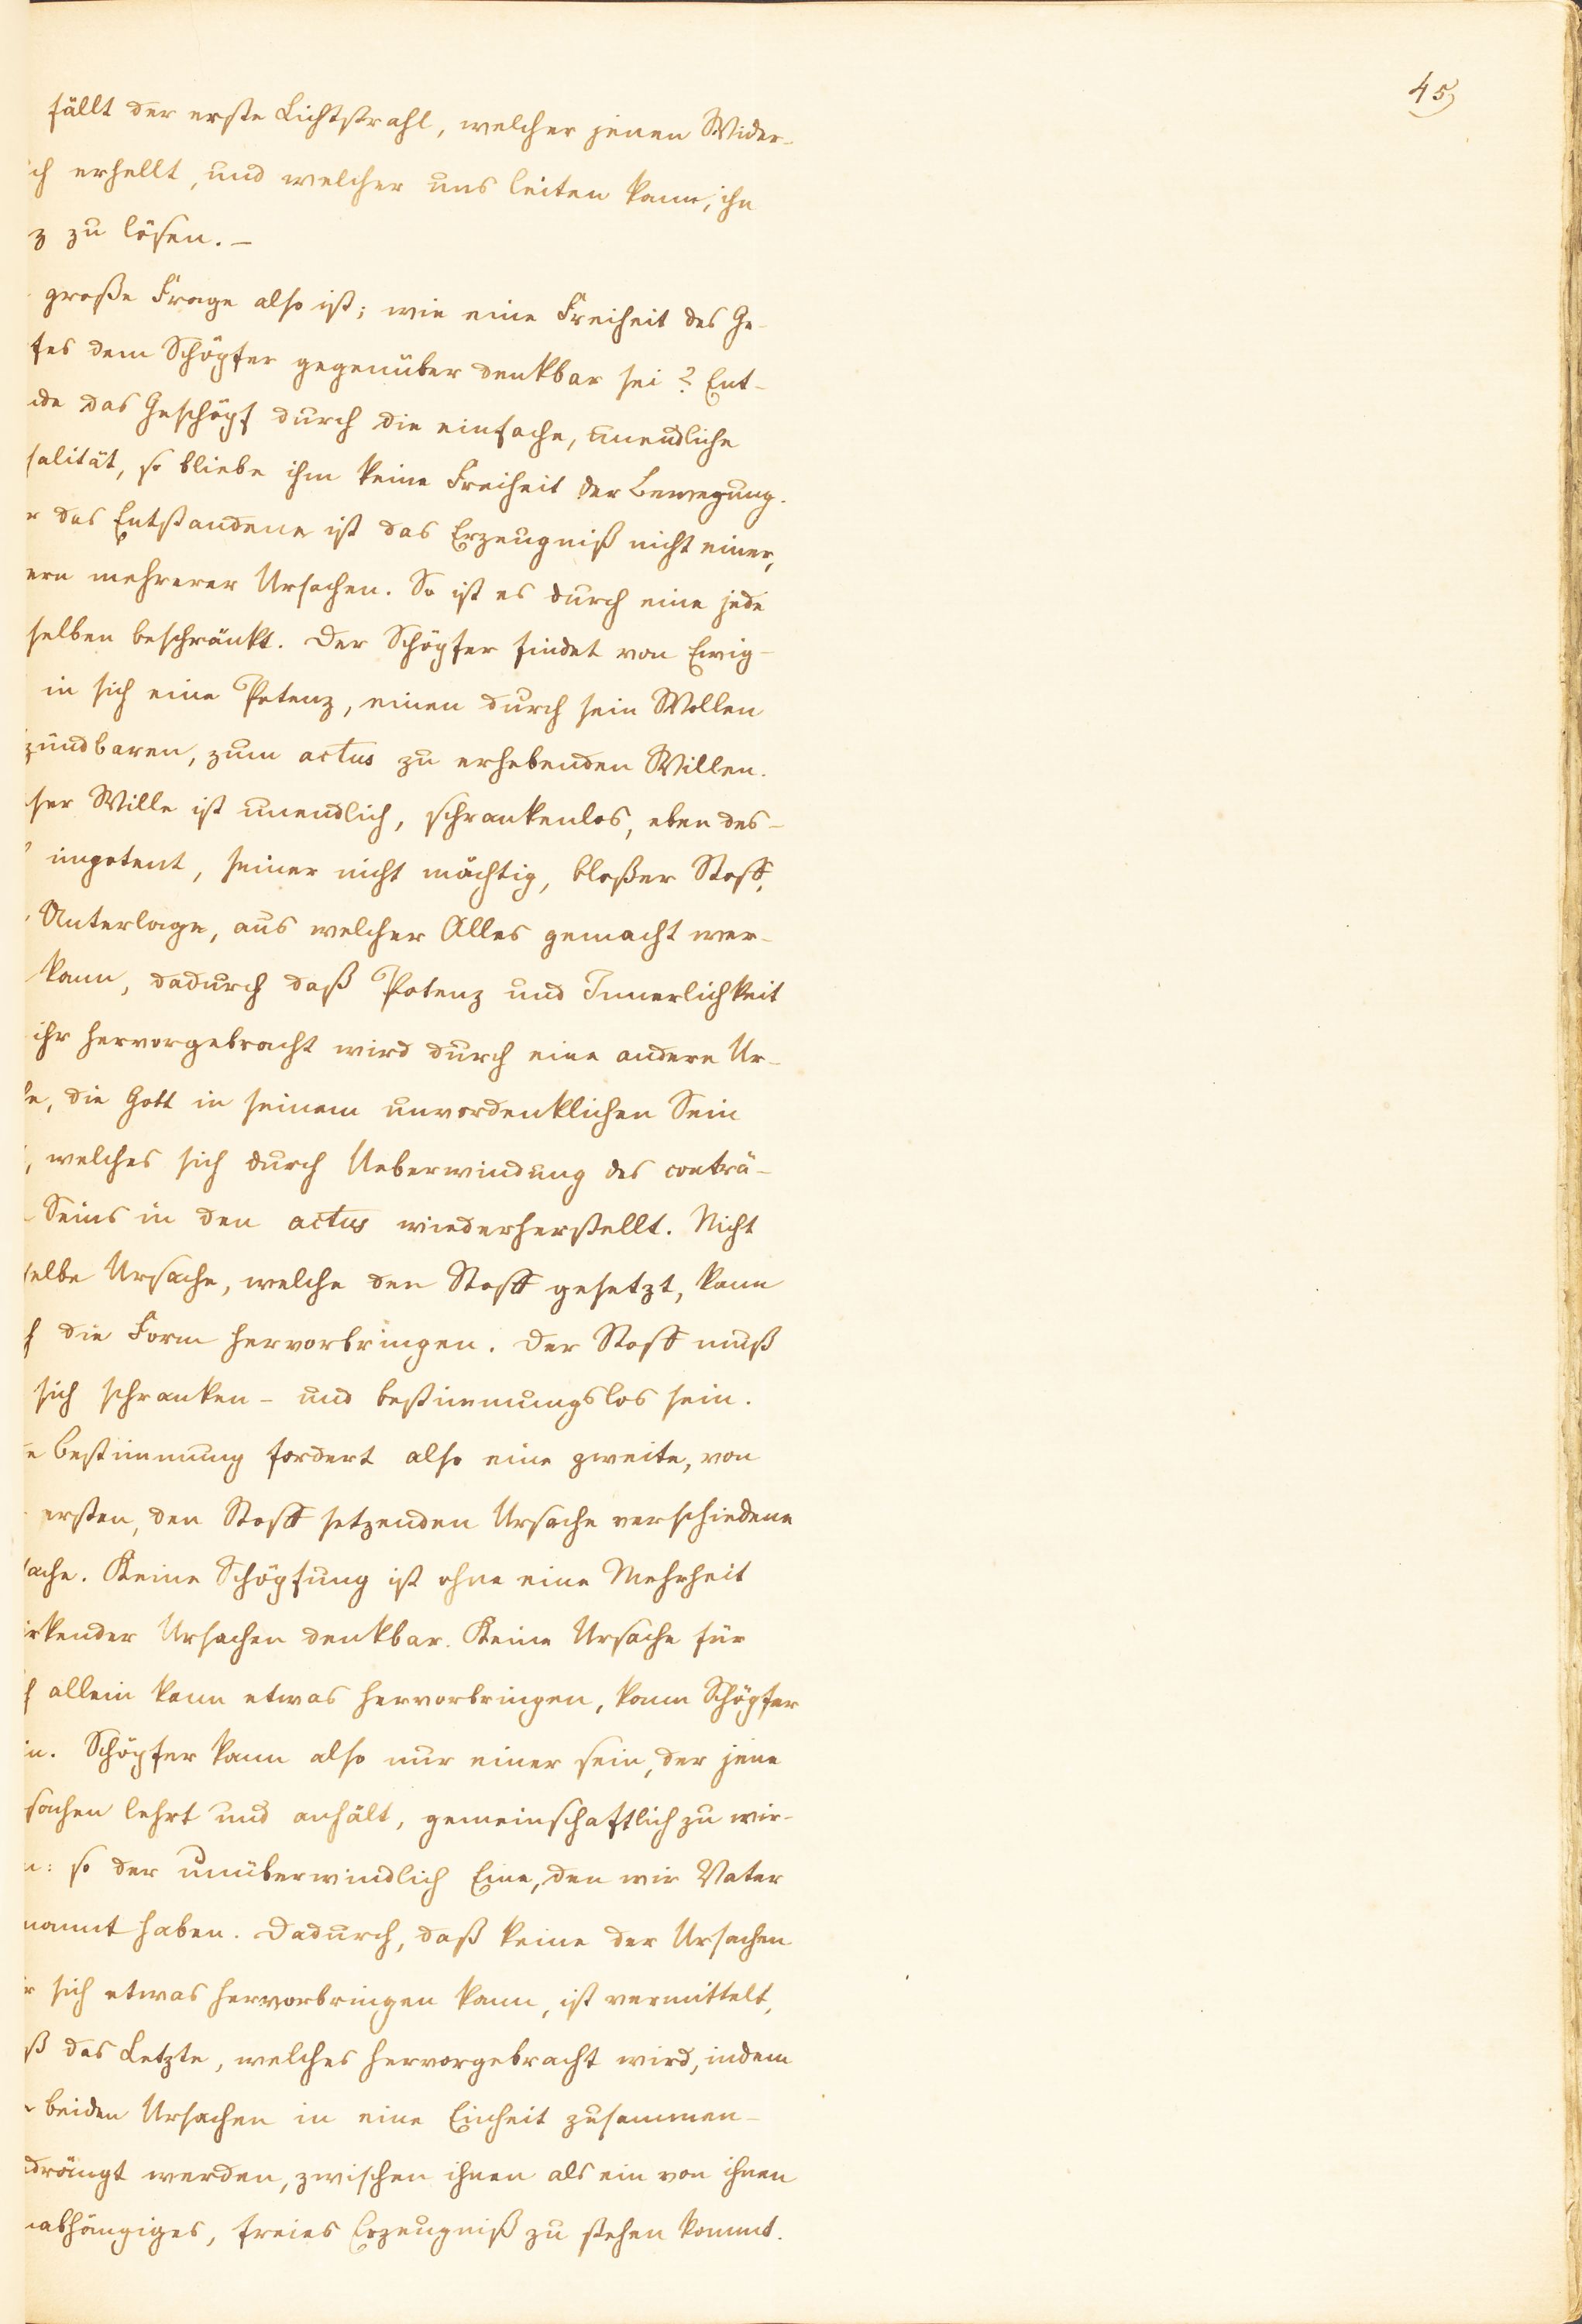 45
fällt der erste Lichtstrahl, welcher jenen Wider-
ch erhellt, und welcher uns leiten kann, ihn
z zu lösen. –
große Frage also ist; wie eine Freiheit des Ge-
fes dem Schöpfer gegenüber denkbar sei? Ent-
de das Geschöpf durch die einfache, unendliche
salität, so bliebe ihm keine Freiheit der Bewegung.
r das Entstandene ist das Erzeugniß nicht einer,
ern mehrerer Ursachen. So ist es durch eine jede
selben beschränkt. Der Schöpfer findet von Ewig-
in sich eine Potenz, einen durch sein Wollen
zündbaren, zum actus zu erhebenden Willen.
ser Wille ist unendlich, schrankenlos, eben des-
impotent, seiner nicht mächtig, bloßer Stoff,
Unterlage, aus welcher Alles gemacht wer-
kann, dadurch daß Potenz und Innerlichkeit
ihr hervorgebracht wird durch eine andere Ur-
e, die Gott in seinem unvordenklichen Sein
, welches sich durch Ueberwindung des conträ-
Seins in den actus wiederherstellt. Nicht
selbe Ursache, welche den Stoff gesetzt, kann
h die Form hervorbringen. Der Stoff muß
sich schranken- und bestimmungslos sein.
e Bestimmung fordert also eine zweite, von
ersten, den Stoff setzenden Ursache verschiedene
sache. Keine Schöpfung ist ohne eine Mehrheit
irkender Ursachen denkbar. Keine Ursache für
h allein kann etwas hervorbringen, kann Schöpfer
in. Schöpfer kann also nur einer sein, der jene
sachen lehrt und anhält, gemeinschaftlich zu wir-
n: so der unüberwindlich Eine, den wir Vater
nannt haben. Dadurch, daß keine der Ursachen
r sich etwas hervorbringen kann, ist vermittelt,
ß das Letzte, welches hervorgebracht wird, indem
beiden Ursachen in eine Einheit zusammen-
drängt werden, zwischen ihnen als ein von ihnen
nabhängiges, freies Erzeugniß zu stehen kommt.